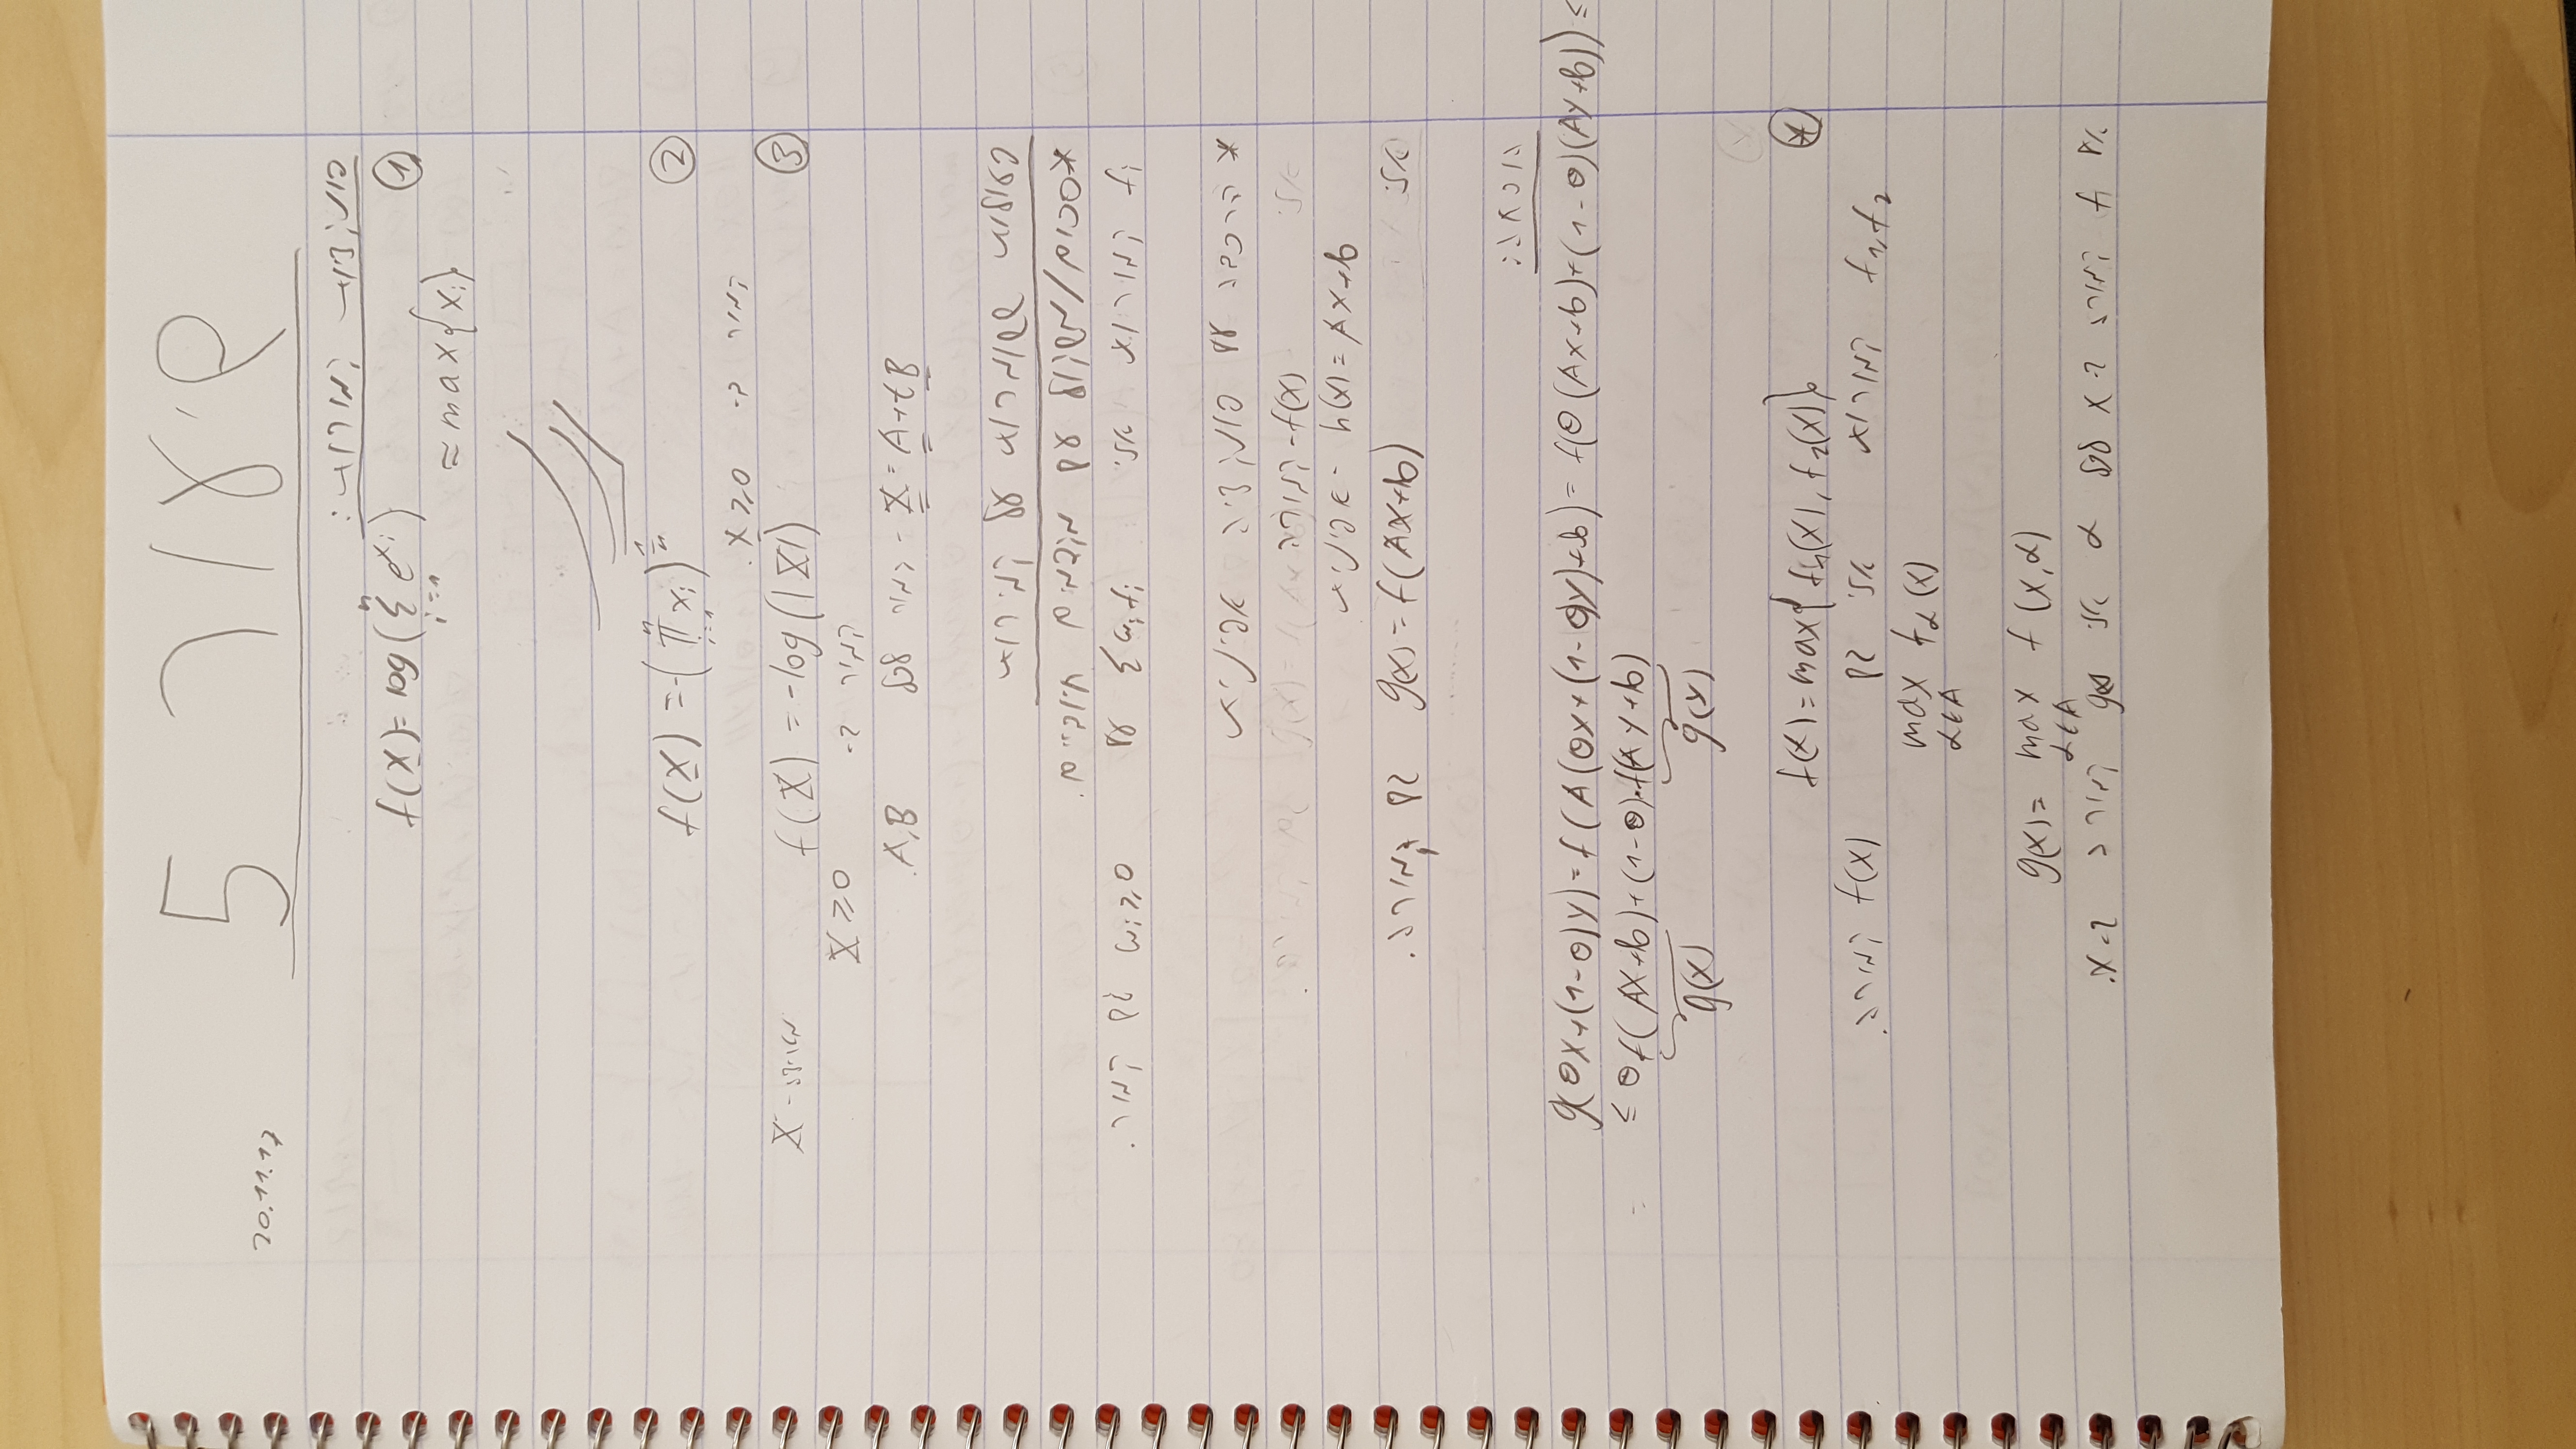 שיעור 5
20.11.17
פונקציות קמורות:
① f(x) = log(∑_{i=1}^{n} e^{x_i})
≈ max{x_i}
② f(x) = -(∏_{i=1}^{n} x_i)^{1/n}
קמור ב- x ≥ 0.
③ f(X) = -log(|X|) X - מטריצה
קמור ב- X ≥ 0
X = A + tB - קמור לכל A,B.
פעולות ששומרות על קמירות
*סכום/משקול עם מקדמים חיוביים.
f_i קמורות אזי ∑w_i f_i עם w_i ≥ 0 גם קמור.
* הרכבה עם פונקציה אפינית
אזי f(x) - קמורה
h(x) = Ax+b - אפינית
אזי g(x) = f(Ax+b) גם קמורה.
הוכחה:
g(θx+(1-θ)y) = f(A(θx+(1-θ)y)+b) = f(θ(Ax+b)+(1-θ)(Ay+b)) ≤
≤ θf(Ax+b)+(1-θ)·f(Ay+b)
g(x) g(y)
* f(x) = max{f_1(x), f_2(x)}
f_1, f_2 קמורות אזי גם f(x) קמורה.
max_{α∈A} f_α(x)
g(x) = max_{α∈A} f(x,α)
אם f קמורה ב-x לכל α אזי g(x) קמורה ב-x.